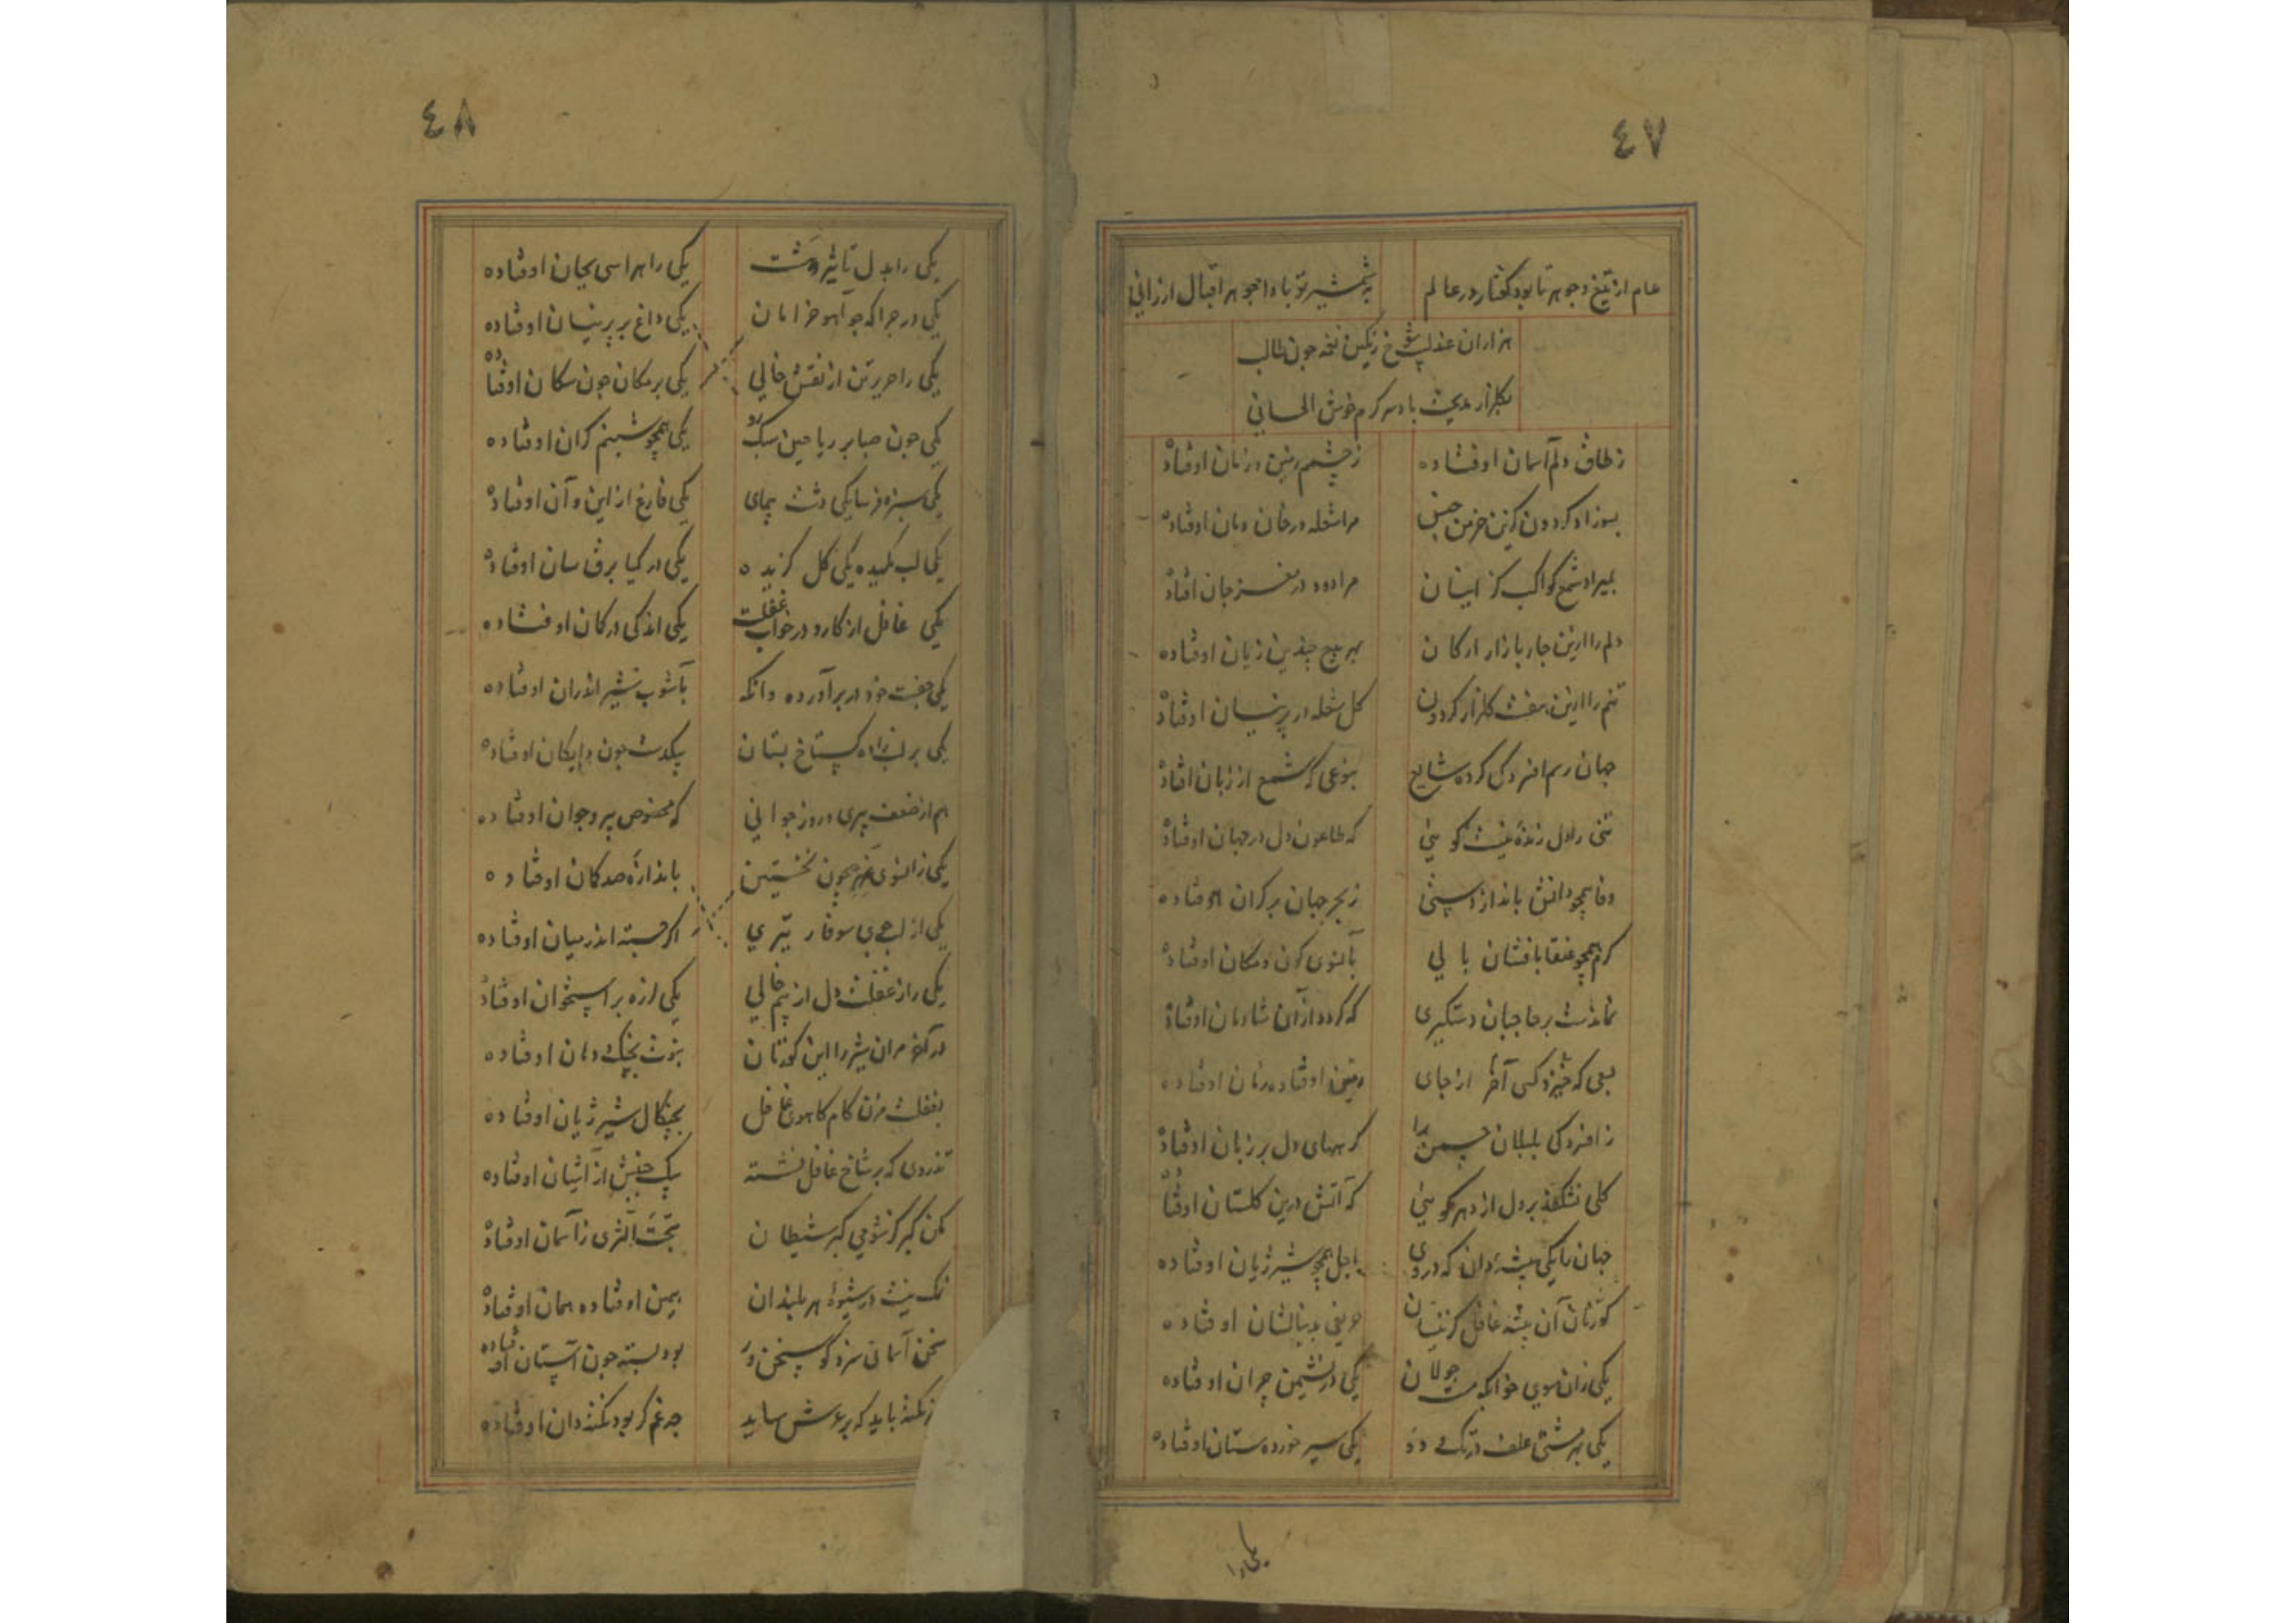 ٤٧
عام از تیغ و جوهر تا بود گفتار در عالم بشمشیر تو بادا جوهر اقبال ارزانی
هزاران عندلیب شوخ رنگین نغمه چون طالب
بگلزار مدیحت باد سرگرم خوش الحانی
ز طاق دلم آسمان اوفتاده ز چشمم زمین و زمان اوفتاده
بسوزاد گردون کزین خرمن خس مرا شعله در خان و مان اوفتاده
بمیراد شمع کواکب کز اینسان مرا دود در مغز جان افتاده
دلم را ازین چار بازار ارکان بهر هیچ چندین زیان اوفتاده
تنم را ازین هفت گلزار گردون گل شعله در پرنیان اوفتاده
جهان رسم افسردگی کرده شایع بنوعی که شمع از زبان افتاده
تنی را دل زنده نیست گویی که طاعون دل در جهان اوفتاده
وفا همچو دانش بانداز پستی ز بحر جهان بر کران اوفتاده
کرم همچو عنقا بافشان بالی بآنسوی کون و مکان اوفتاده
نماندست بر حاجبان دستگیری که گردد از آن شادمان اوفتاده
بعی که خیزد کسی آخر از جای زمین اوفتاده زمان اوفتاده
ز افسردگی بلبلان چمن را گرههای دل بر زبان اوفتاده
گلی نشکفد بر دل از دهر گویی که آتش درین گلستان اوفتاده
جهان را یکی بیشه دان که در وی اجل همچو شیر ژیان اوفتاده
گوزنان آن بیشه غافل کزینسان حریفی بدنبالشان اوفتاده
یکی زان سوی خوابگه مست جولان یکی در نشیمن چران اوفتاده
یکی بهر مشتی علف در تک و دو یکی سیر خورده ستان اوفتاده
یکی را
٤٨
یکی را بدل تأثیر وحشت یکی را هراسی بجان اوفتاده
یکی در چراگه چو آهو خرامان یکی داغ بر پرنیان اوفتاده
یکی را حریر تن از نقش خالی یکی بر مکان چون سکان اوفتاده
یکی چون صبا بر ریاحین سبک رو یکی همچو شبنم گران اوفتاده
یکی سبزه فرسا یکی دشت پیمای یکی فارغ از این و آن اوفتاده
یکی لب مکیده یکی گل گزیده یکی در گیا برق سان اوفتاده
یکی غافل از کار و در خواب غفلت یکی اندکی در گمان اوفتاده
یکی جفت خود در بر آورده وانگه بآشوب شیر اندران اوفتاده
یکی بر لب گستاخ بستان بیکدست چون دایگان اوفتاده
هم از ضعف پیری و روز جوانی که مخصوص پیر و جوان اوفتاده
یکی زانسوی همچون نخستین باندازه صد کمان اوفتاده
یکی از سوفار تیری اگر جسته اندر میان اوفتاده
یکی را ز غفلت دل از بیم خالی یکی لرزه بر استخوان اوفتاده
در آخر مران شیر را این گوزنان بنوبت بچنگ و دهان اوفتاده
بغفلت مزن گام کاهوی غافل بچنگال شیر ژیان اوفتاده
تذروی که بر شاخ غافل نشسته بیک جنبش از آشیان اوفتاده
مکن کبر کز شومی کبر شیطان بتحت الثری ز آسمان اوفتاده
نمک نیست در شیوه سربلندان همین اوفتاده همان اوفتاده
سخن آسمانی سزد گو سخن ور بود بسته چون آستان اوفتاده
ز نکته باید که بر عرش ساید چه غم گر بود نکته دان اوفتاده